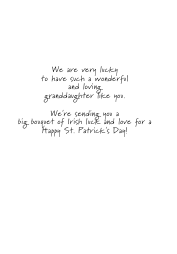 We are very lucky
to have such a wonderful
and loving
granddaughter like you.
We're sending you a
big bouquet of Irish luck and love for a
Happy St. Patrick's Day!